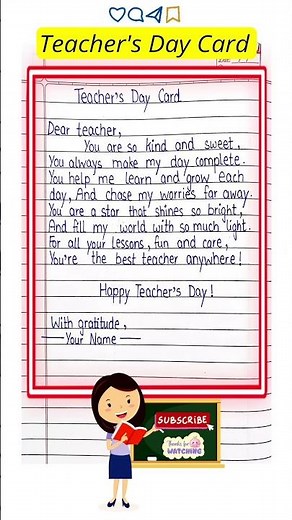 Teacher's Day Card
Teacher's Day Card
Dear teacher,
You are so kind and sweet,
You always make my day complete.
You help me learn and grow each
day, And chase my worries far away.
You are a star that shines so bright,
And fill my world with so much light.
For all your lessons, fun and care,
You're the best teacher anywhere!
Happy Teacher's Day!
With gratitude,
— Your Name —
SUBSCRIBE
Thanks for
WATCHING